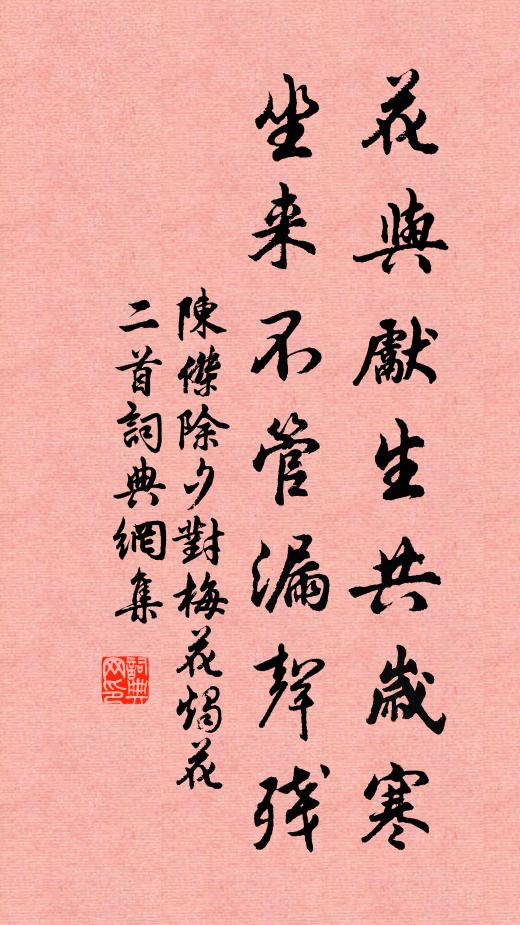 花與獻生共歲寒
坐来不管漏聲殘
陳傑除夕對梅花燭花
二首詞典網集
詞典
网印